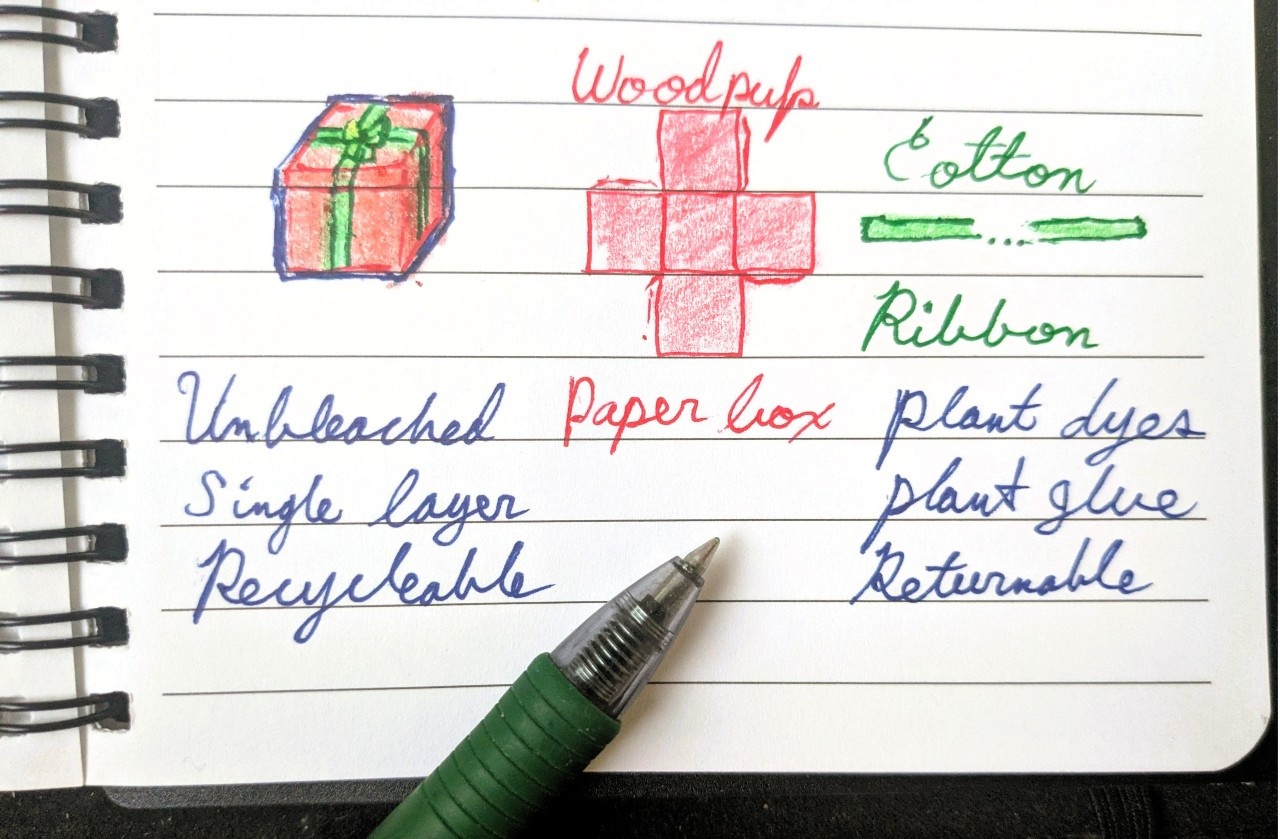 Woodpulp
Cotton
Ribbon
Unbleached
Paper box
plant dyes
Single layer
plant glue
Recycleable
Returnable